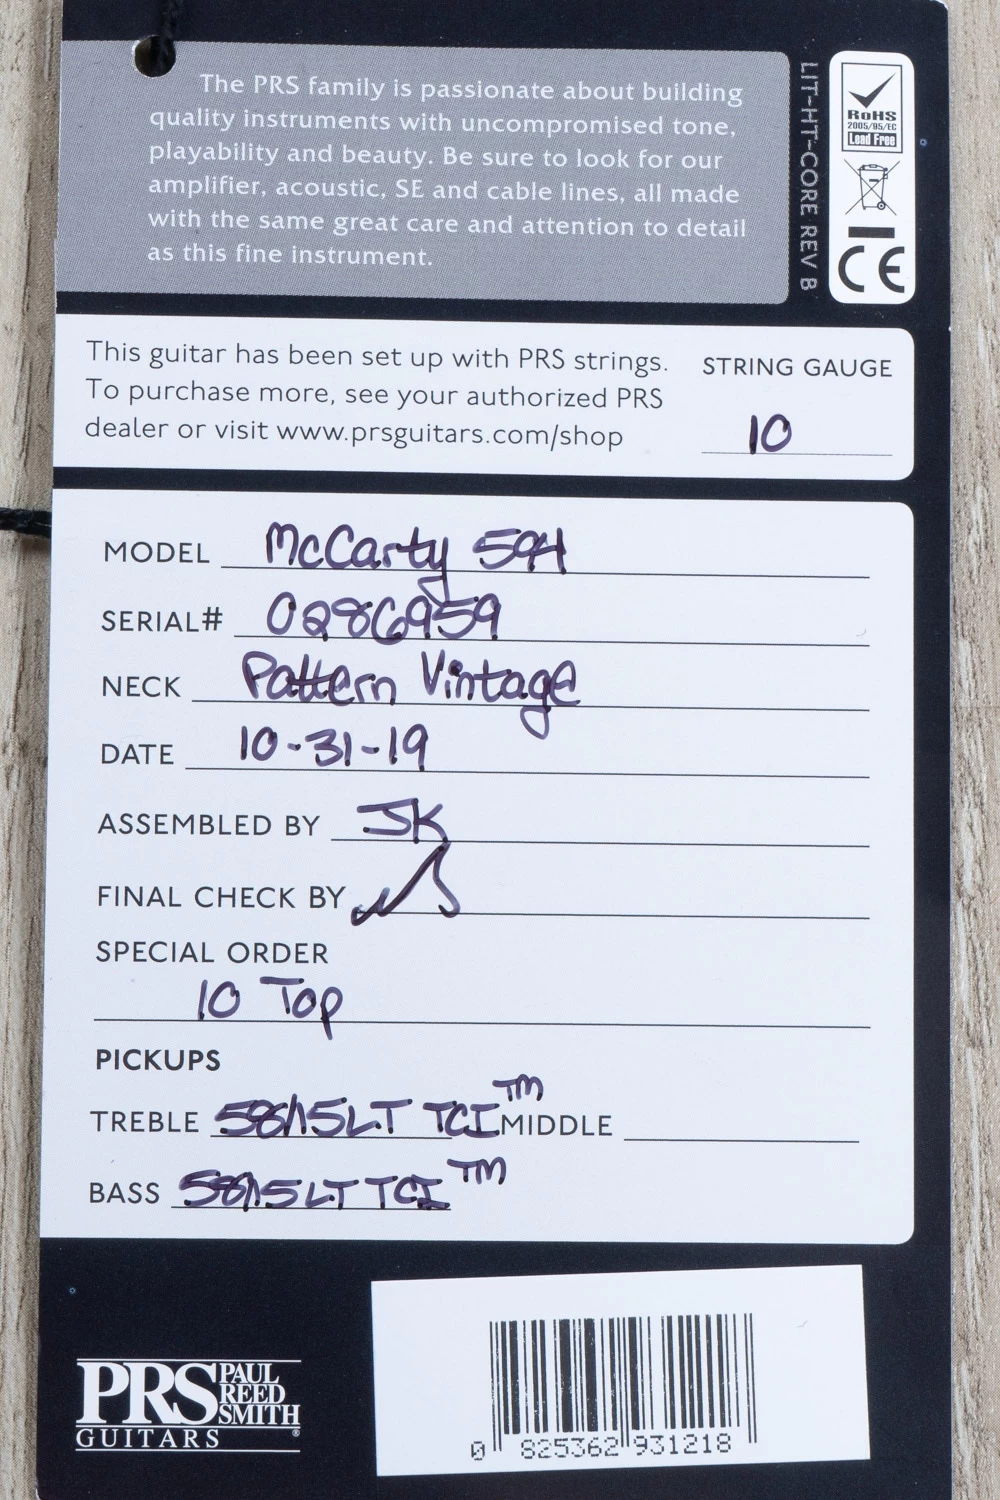 The PRS family is passionate about building
quality instruments with uncompromised tone,
playability and beauty. Be sure to look for our
amplifier, acoustic, SE and cable lines, all made
with the same great care and attention to detail
as this fine instrument.
LIT-HT-CORE REV B
RoHS
2005/95/EC
Lead Free
CE
This guitar has been set up with PRS strings.
To purchase more, see your authorized PRS
dealer or visit www.prsguitars.com/shop
STRING GAUGE
10
MODEL McCarty 594
SERIAL# 0286959
NECK Pattern Vintage
DATE 10-31-19
ASSEMBLED BY JK
FINAL CHECK BY
SPECIAL ORDER
10 Top
PICKUPS
TREBLE 58/15LT TCI™ MIDDLE
BASS 58/15LT TCI™
PRS PAUL REED SMITH
GUITARS®
0 825362 931218